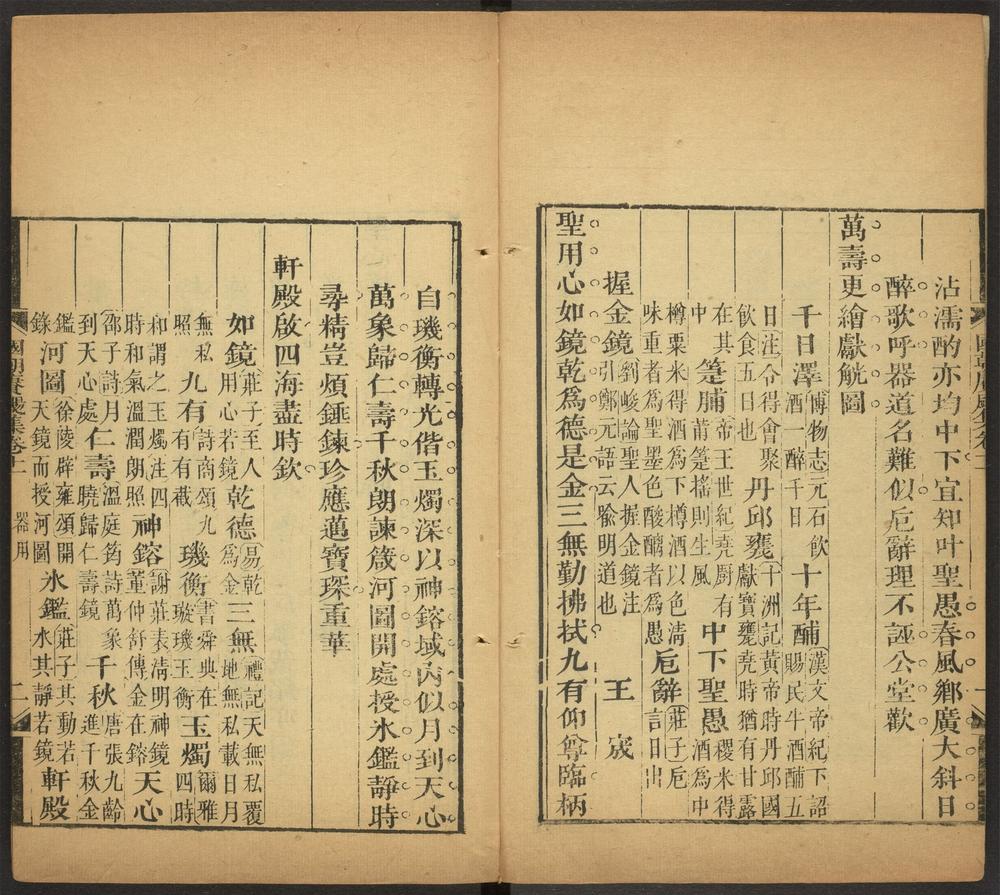 沾濡酌亦均中下宜知叶聖愚春風鄉廣大斜日
醉歌呼器道名難似卮辭理不誣公堂歡
萬壽更繪獻觥圖
千日澤博物志元石飲酒一醉千日十年酺漢文帝紀下詔賜民牛酒酺五
日注令得會聚飲食五日也丹邱甕十洲記黃帝時丹邱國獻寶甕堯時猶有甘露
在其中箑脯帝王世紀堯廚有莆箑搖則生風中下聖愚稷米得酒為中
樽粟米得酒為下樽酒以色清味重者為聖墨色酸醨者為愚卮辭莊子卮言日出
握金鏡劉峻論聖人握金鏡注引鄭元語云喻明道也 王宬
聖用心如鏡乾為德是金三無勤拂拭九有仰尊臨柄
自璣衡轉光偕玉燭深以神鎔域內似月到天心
萬象歸仁壽千秋朗諫箴河圖開處授氷鑑靜時
尋精豈煩錘鍊珍應邁寶琛重華
軒殿啟四海盡時欽
如鏡莊子至人用心若鏡乾德易乾為金三無禮記天無私覆地無私載日月
無私照九有詩商頌九有有截璣衡書舜典在璇璣玉衡玉燭爾雅四時
和謂之玉燭注四時和氣溫潤朗照神鎔謝莊表清明神鏡董仲舒傳金在鎔天心
邵子詩月到天心處仁壽溫庭筠詩萬象曉歸仁壽鏡千秋唐張九齡進千秋金
鑑錄河圖徐陵辟雍頌開天鏡而授河圖氷鑑莊子其動若水其靜若鏡軒殿
國朝 集卷十一 器用 二